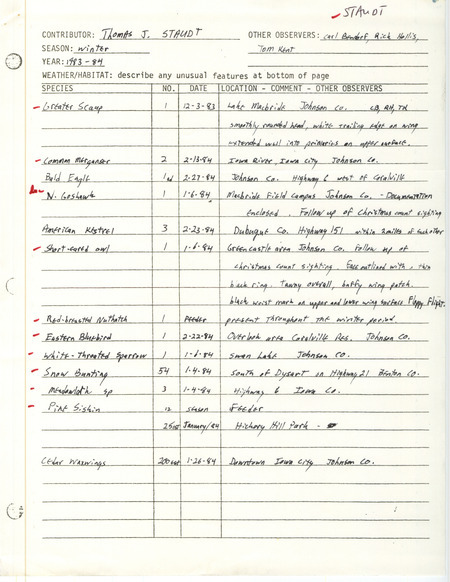 STAUDT
CONTRIBUTOR: Thomas J. STAUDT OTHER OBSERVERS: Carl Bendorf, Rick Hollis,
SEASON: Winter Tom Kent
YEAR: 1983-84
WEATHER/HABITAT: describe any unusual features at bottom of page
SPECIES NO. DATE LOCATION - COMMENT - OTHER OBSERVERS
Greater Scaup 1 12-3-83 Lake Macbride Johnson Co. CB, RH, TK
smoothly rounded head, white trailing edge on wing
extended well into primaries on upper surface.
Common Merganser 2 2-13-84 Iowa River, Iowa City Johnson Co.
Bald Eagle 1 ad 2-27-84 Johnson Co. Highway 6 west of Coralville
N. Goshawk 1 1-6-84 Macbride Field campus Johnson Co. - Documentation
enclosed. Follow up of Christmas count sighting
American Kestrel 3 2-23-84 Dubuque Co. Highway 151 within 2 miles of each other
Short-eared owl 1 1-6-84 Greencastle area Johnson Co. Follow up of
christmas count sighting. Face outlined with a thin
back ring. Tawny overall, buffy wing patch.
black wrist mark on upper and lower wing surface Floppy Flight.
Red-breasted Nuthatch 1 Feeder present throughout the winter period.
Eastern Bluebird 1 2-22-84 Overlook area Coralville Res. Johnson Co.
White-Throated Sparrow 1 1-6-84 Swan Lake Johnson Co.
Snow Bunting 54 1-4-84 South of Dysart on Highway 21 Benton Co.
Meadowlark sp 3 1-4-84 Highway 6 Iowa Co.
Pine Siskin 12 season Feeder
25 January/84 Hickory Hill Park -
Cedar Waxwings 200 1-26-84 Downtown Iowa City Johnson Co.